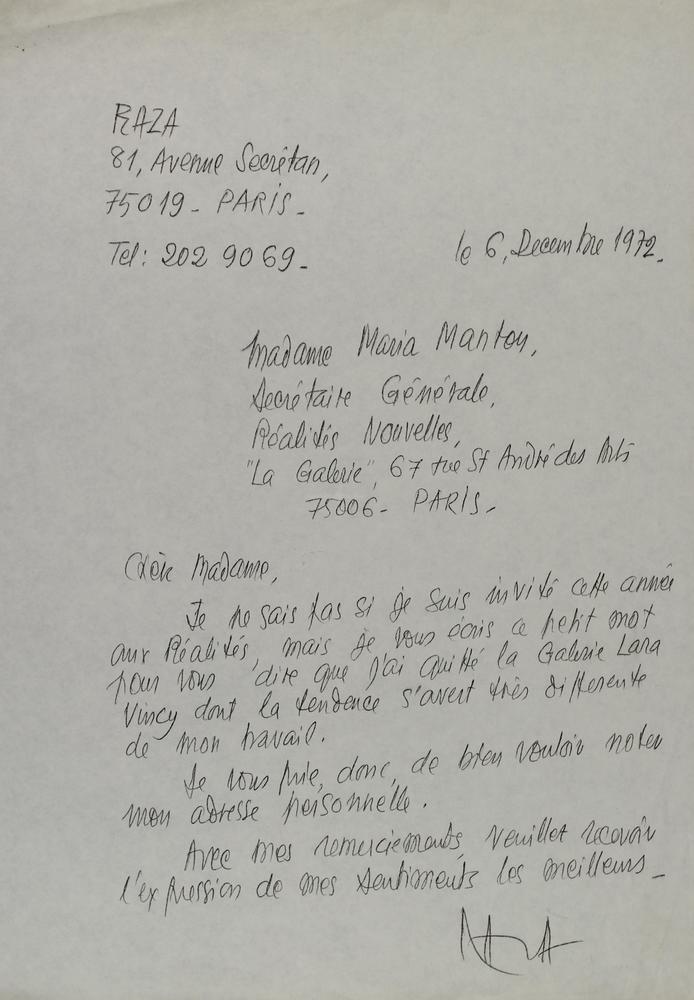 RAZA
81, Avenue Secrétan,
75019 - PARIS -
Tel: 202 90 69 -
le 6, Decembre 1972.
Madame Maria Manton,
Secrétaire Générale,
Réalités Nouvelles,
"La Galerie", 67 rue St André des Arts
75006 - PARIS -
Chère Madame,
Je ne sais pas si je suis invité cette année
aux Réalités, mais je vous écris ce petit mot
pour vous dire que j'ai quitté la Galerie Lara
Vincy dont la tendence s'avert très differente
de mon travail.
Je vous prie, donc, de bien vouloir noter
mon adresse personnelle.
Avec mes remerciements, veuillez recevoir
l'expression de mes sentiments les meilleurs -
RAZA